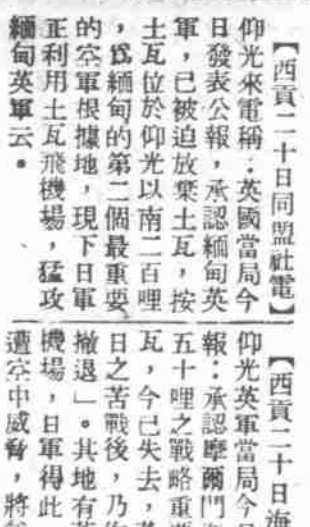 【西貢二十日同盟社電】
仰光來電稱：英國當局今
日發表公報，承認緬甸英
軍，已被迫放棄土瓦，按
土瓦位於仰光以南二百哩
，爲緬甸的第二個最重要
的空軍根據地，現下日軍
正利用土瓦飛機場，猛攻
緬甸英軍云。
【西貢二十日海
仰光英軍當局今
報：承認摩爾門
五十哩之戰略重
瓦，今已失去，
日之苦戰後，乃
撤退」。其地有
機場，日軍得此
遭空中威脅，將